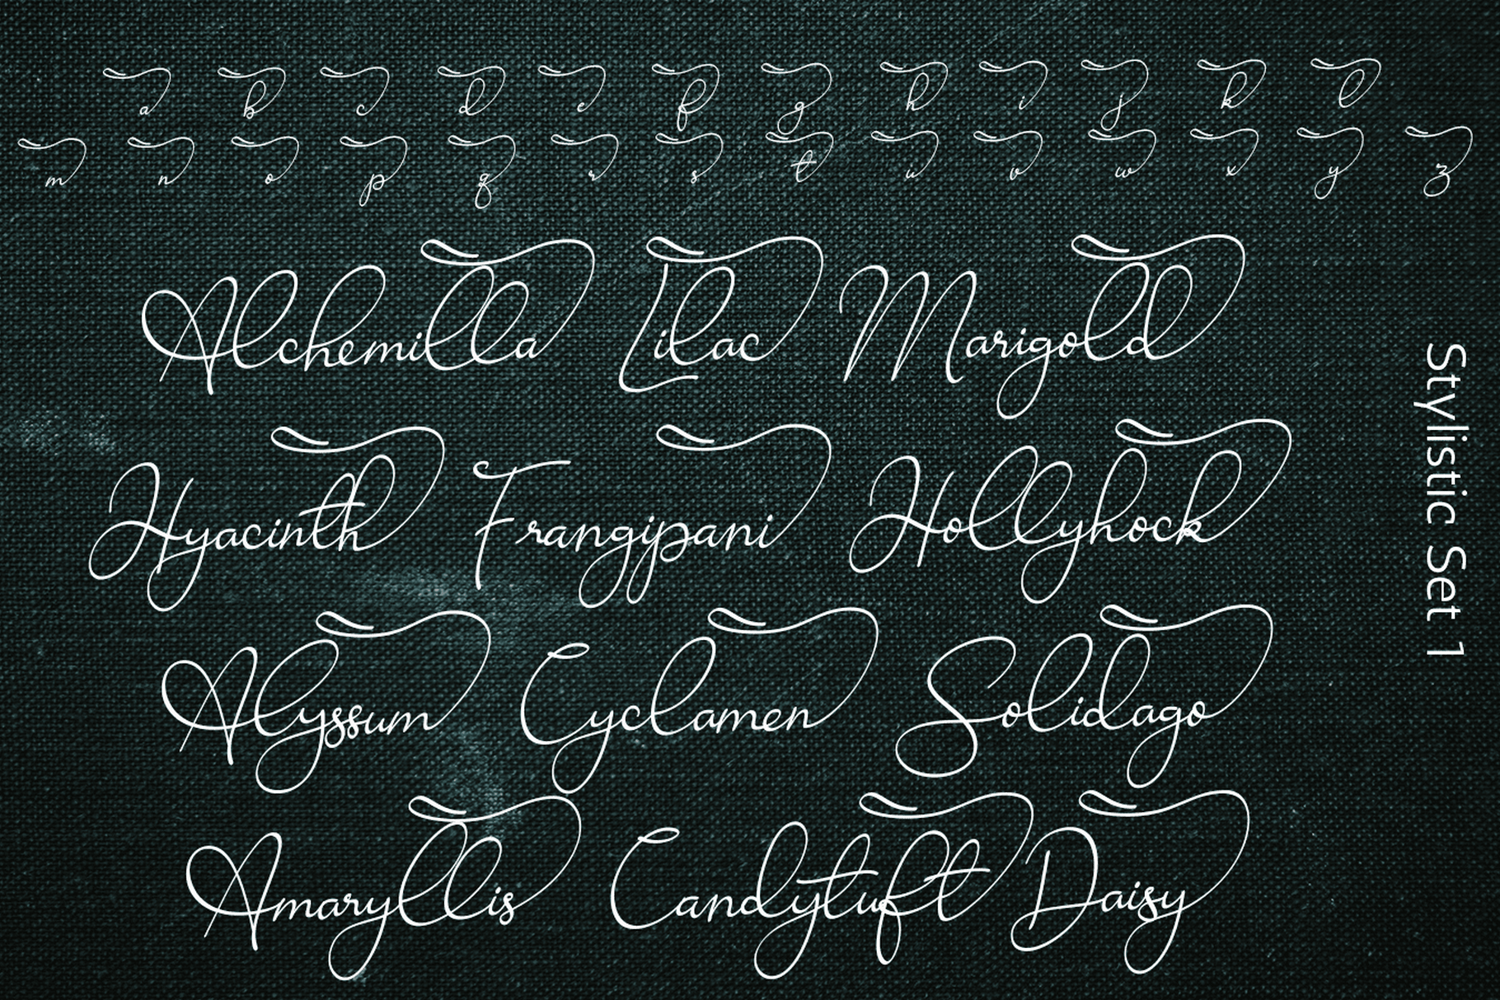 a b c d e f g h i j k l
m n o p q r s t u v w x y z
Alchemilla Lilac Marigold
Hyacinth Frangipani Hollyhock
Alyssum Cyclamen Solidago
Amaryllis Candytuft Daisy
Stylistic Set 1